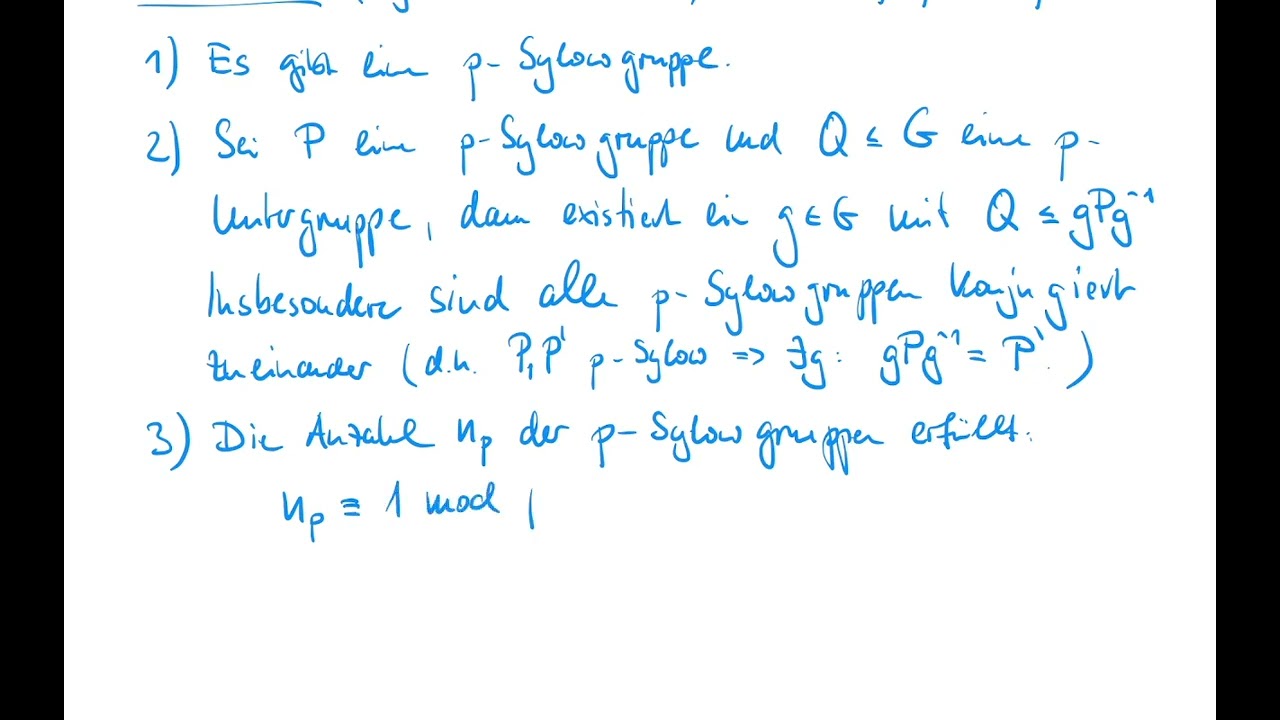 1) Es gibt eine p-Sylowgruppe.
2) Sei P eine p-Sylowgruppe und Q ≤ G eine p-
Untergruppe, dann existiert ein g ∈ G mit Q ≤ gPg⁻¹
Insbesondere sind alle p-Sylowgruppen konjugiert
zueinander (d.h. P, P' p-Sylow => ∃g: gPg⁻¹ = P'.)
3) Die Anzahl nₚ der p-Sylowgruppen erfüllt:
nₚ ≡ 1 mod